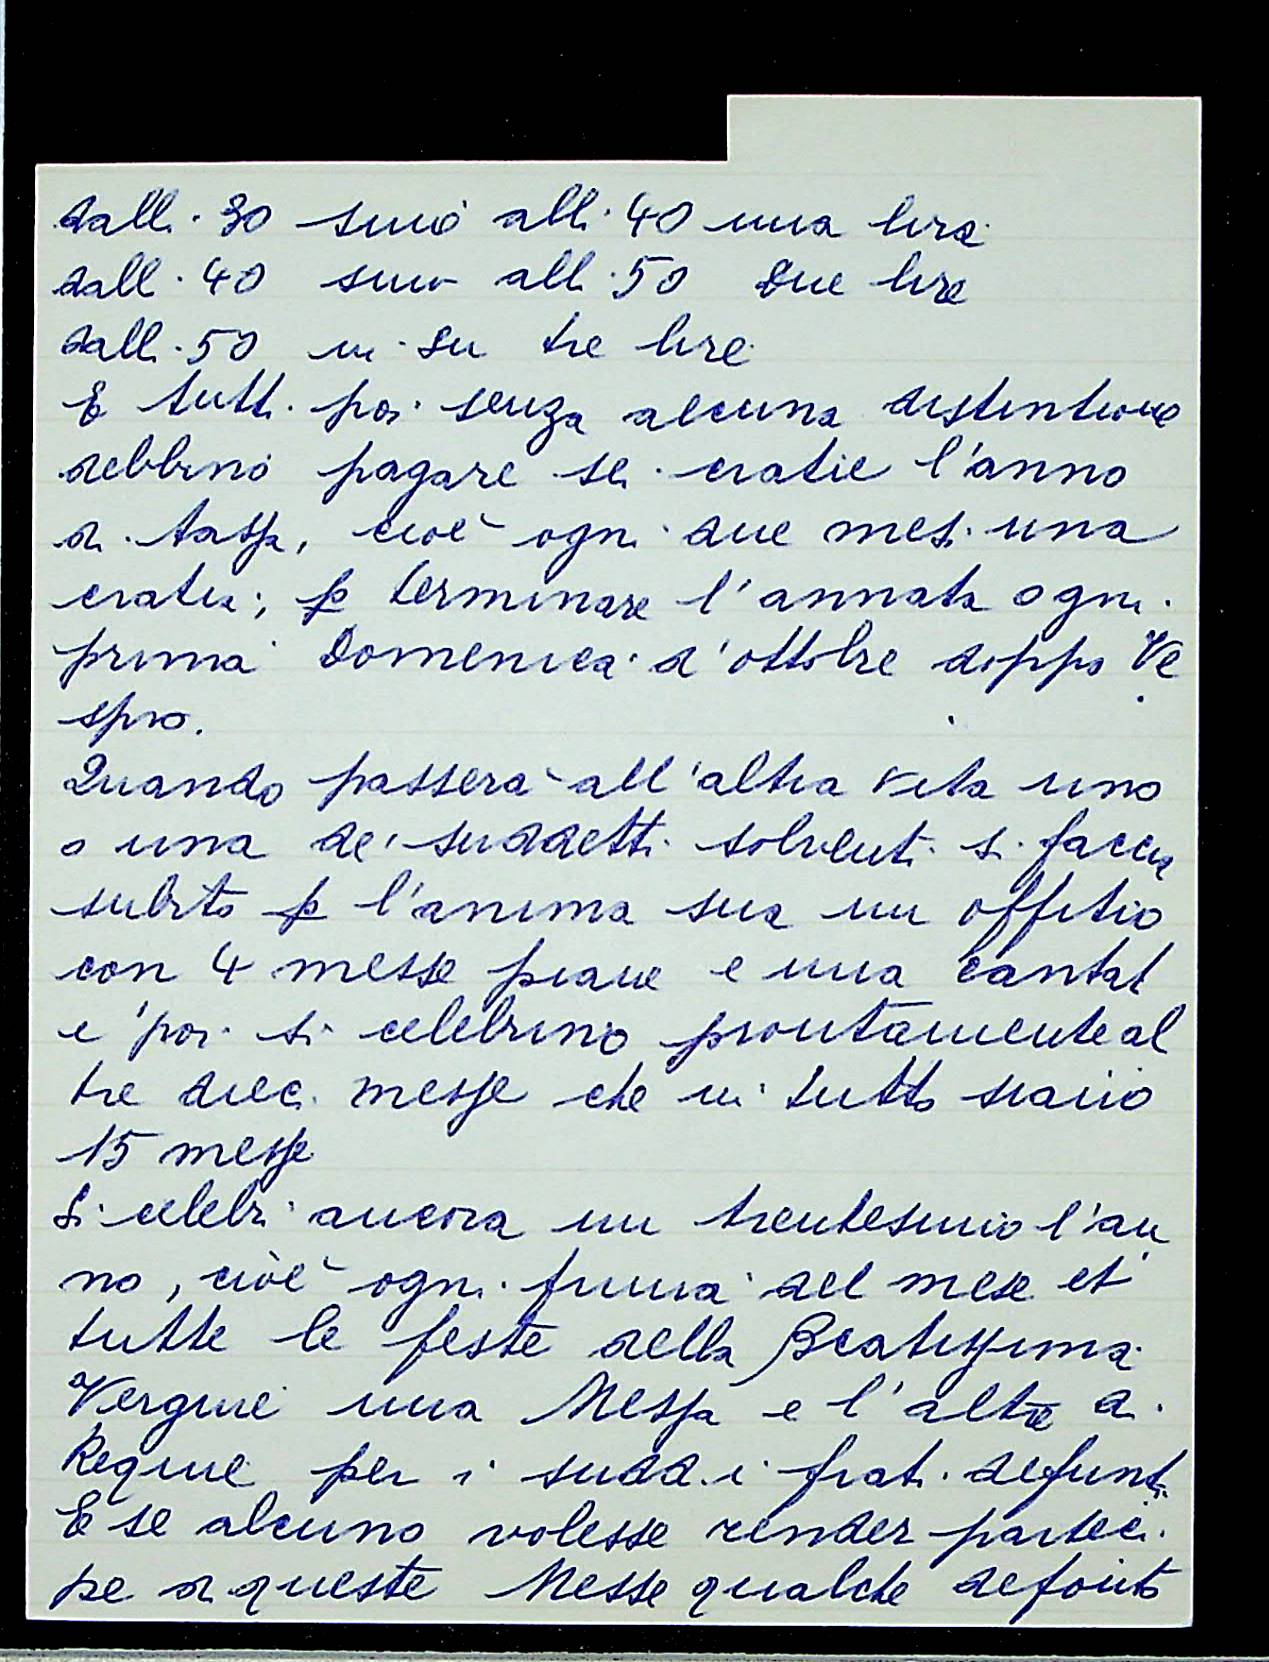 dalli 30 sino alli 40 una lira
dalli 40 sino alli 50 due lire
dalli 50 in su tre lire
E tutti poi senza alcuna distintione
debbino pagare sei cratie l'anno
di tassa, cioè ogni due mesi una
cratia; p terminare l'annata ogni
prima Domenica d'ottobre doppo Ve
spro.
Quando passerà all'altra vita uno
o una de' suddetti solventi si faccia
subito p l'anima sua un offitio
con 4 messe piane e una cantat
e poi si celebrino prontamente al
tre dieci messe che in tutto siano
15 messe
Si celebri ancora un trentesimo l'an
no, cioè ogni prima del mese et
tutte le feste della Beatissima
Vergine una Messa e l'altre di
Requie per i sudd.i frati defunti
E se alcuno volesse render parteci
pe di queste Messe qualche defonto